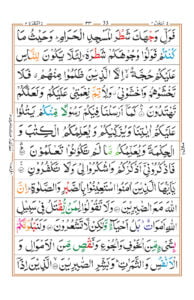 البقرة ٢ ٣٣ 33 سيقول ٢
فَوَلِّ وَجْهَكَ شَطْرَ الْمَسْجِدِ الْحَرَامِ ؕ وَحَيْثُ مَا
كُنْتُمْ فَوَلُّوْا وُجُوْهَكُمْ شَطْرَهٗ ۙ لِئَلَّا يَكُوْنَ لِلنَّاسِ
عَلَيْكُمْ حُجَّةٌ ۙ اِلَّا الَّذِيْنَ ظَلَمُوْا مِنْهُمْ ۗ فَلَا
تَخْشَوْهُمْ وَاخْشَوْنِيْ ۗ وَلِاُتِمَّ نِعْمَتِيْ عَلَيْكُمْ وَلَعَلَّكُمْ
تَهْتَدُوْنَ ۙ كَمَآ اَرْسَلْنَا فِيْكُمْ رَسُوْلًا مِّنْكُمْ يَتْلُوْا
عَلَيْكُمْ اٰيٰتِنَا وَيُزَكِّيْكُمْ وَيُعَلِّمُكُمُ الْكِتٰبَ وَ
الْحِكْمَةَ وَيُعَلِّمُكُمْ مَّا لَمْ تَكُوْنُوْا تَعْلَمُوْنَ
فَاذْكُرُوْنِيْٓ اَذْكُرْكُمْ وَاشْكُرُوْا لِيْ وَلَا تَكْفُرُوْنِ
يٰٓاَيُّهَا الَّذِيْنَ اٰمَنُوا اسْتَعِيْنُوْا بِالصَّبْرِ وَالصَّلٰوةِ ؕ اِنَّ
اللّٰهَ مَعَ الصّٰبِرِيْنَ وَلَا تَقُوْلُوْا لِمَنْ يُّقْتَلُ فِيْ سَبِيْلِ
اللّٰهِ اَمْوَاتٌ ؕ بَلْ اَحْيَآءٌ وَّلٰكِنْ لَّا تَشْعُرُوْنَ وَلَنَبْلُوَنَّكُمْ
بِشَيْءٍ مِّنَ الْخَوْفِ وَالْجُوْعِ وَنَقْصٍ مِّنَ الْاَمْوَالِ وَ
الْاَنْفُسِ وَالثَّمَرٰتِ ؕ وَبَشِّرِ الصّٰبِرِيْنَ الَّذِيْنَ اِذَآ